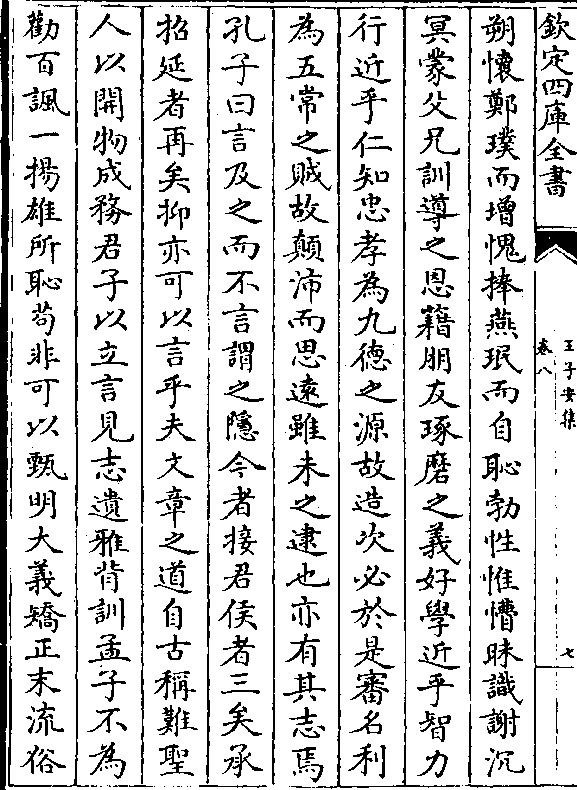 欽定四庫全書
王子安集
卷八
七
朔懷鄭璞而增愧捧燕珉而自恥勃性惟懵昧識謝沉
冥蒙父兄訓導之恩籍朋友琢磨之義好學近乎智力
行近乎仁知忠孝為九德之源故造次必於是審名利
為五常之賊故顛沛而思遠雖未之逮也亦有其志焉
孔子曰言及之而不言謂之隱今者接君侯者三矣承
招延者再矣抑亦可以言乎夫文章之道自古稱難聖
人以開物成務君子以立言見志遺雅背訓孟子不為
勸百諷一揚雄所恥苟非可以甄明大義矯正末流俗